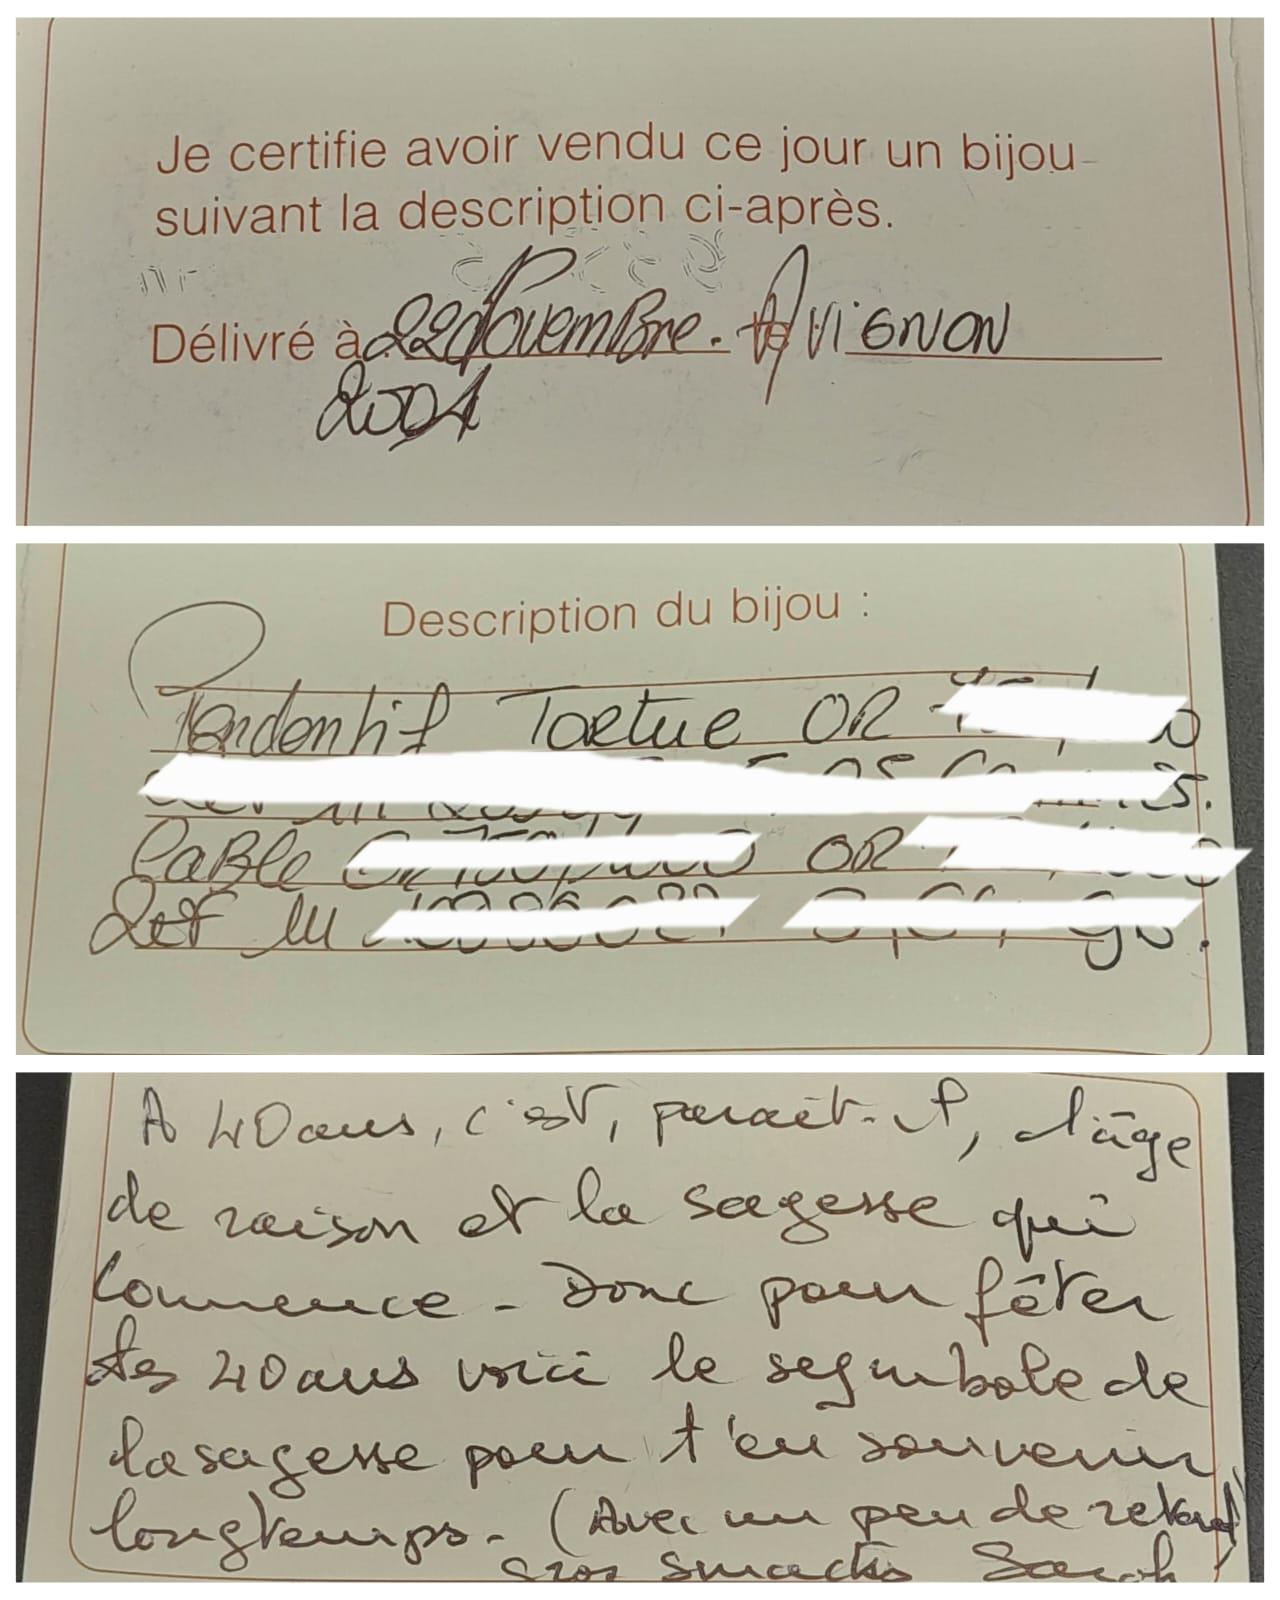 Je certifie avoir vendu ce jour un bijou
suivant la description ci-après.
Délivré à 22 Novembre. Avignon
2001
Description du bijou :
Pendentif Tortue OR
Cable OR
Ref LU
A 40 ans, c'est, paraît-il, l'âge
de raison et la sagesse qui
commence - Donc pour fêter
tes 40 ans voici le symbole de
la sagesse pour t'en souvenir
longtemps - (Avec un peu de retard)
gros smacks Sarah